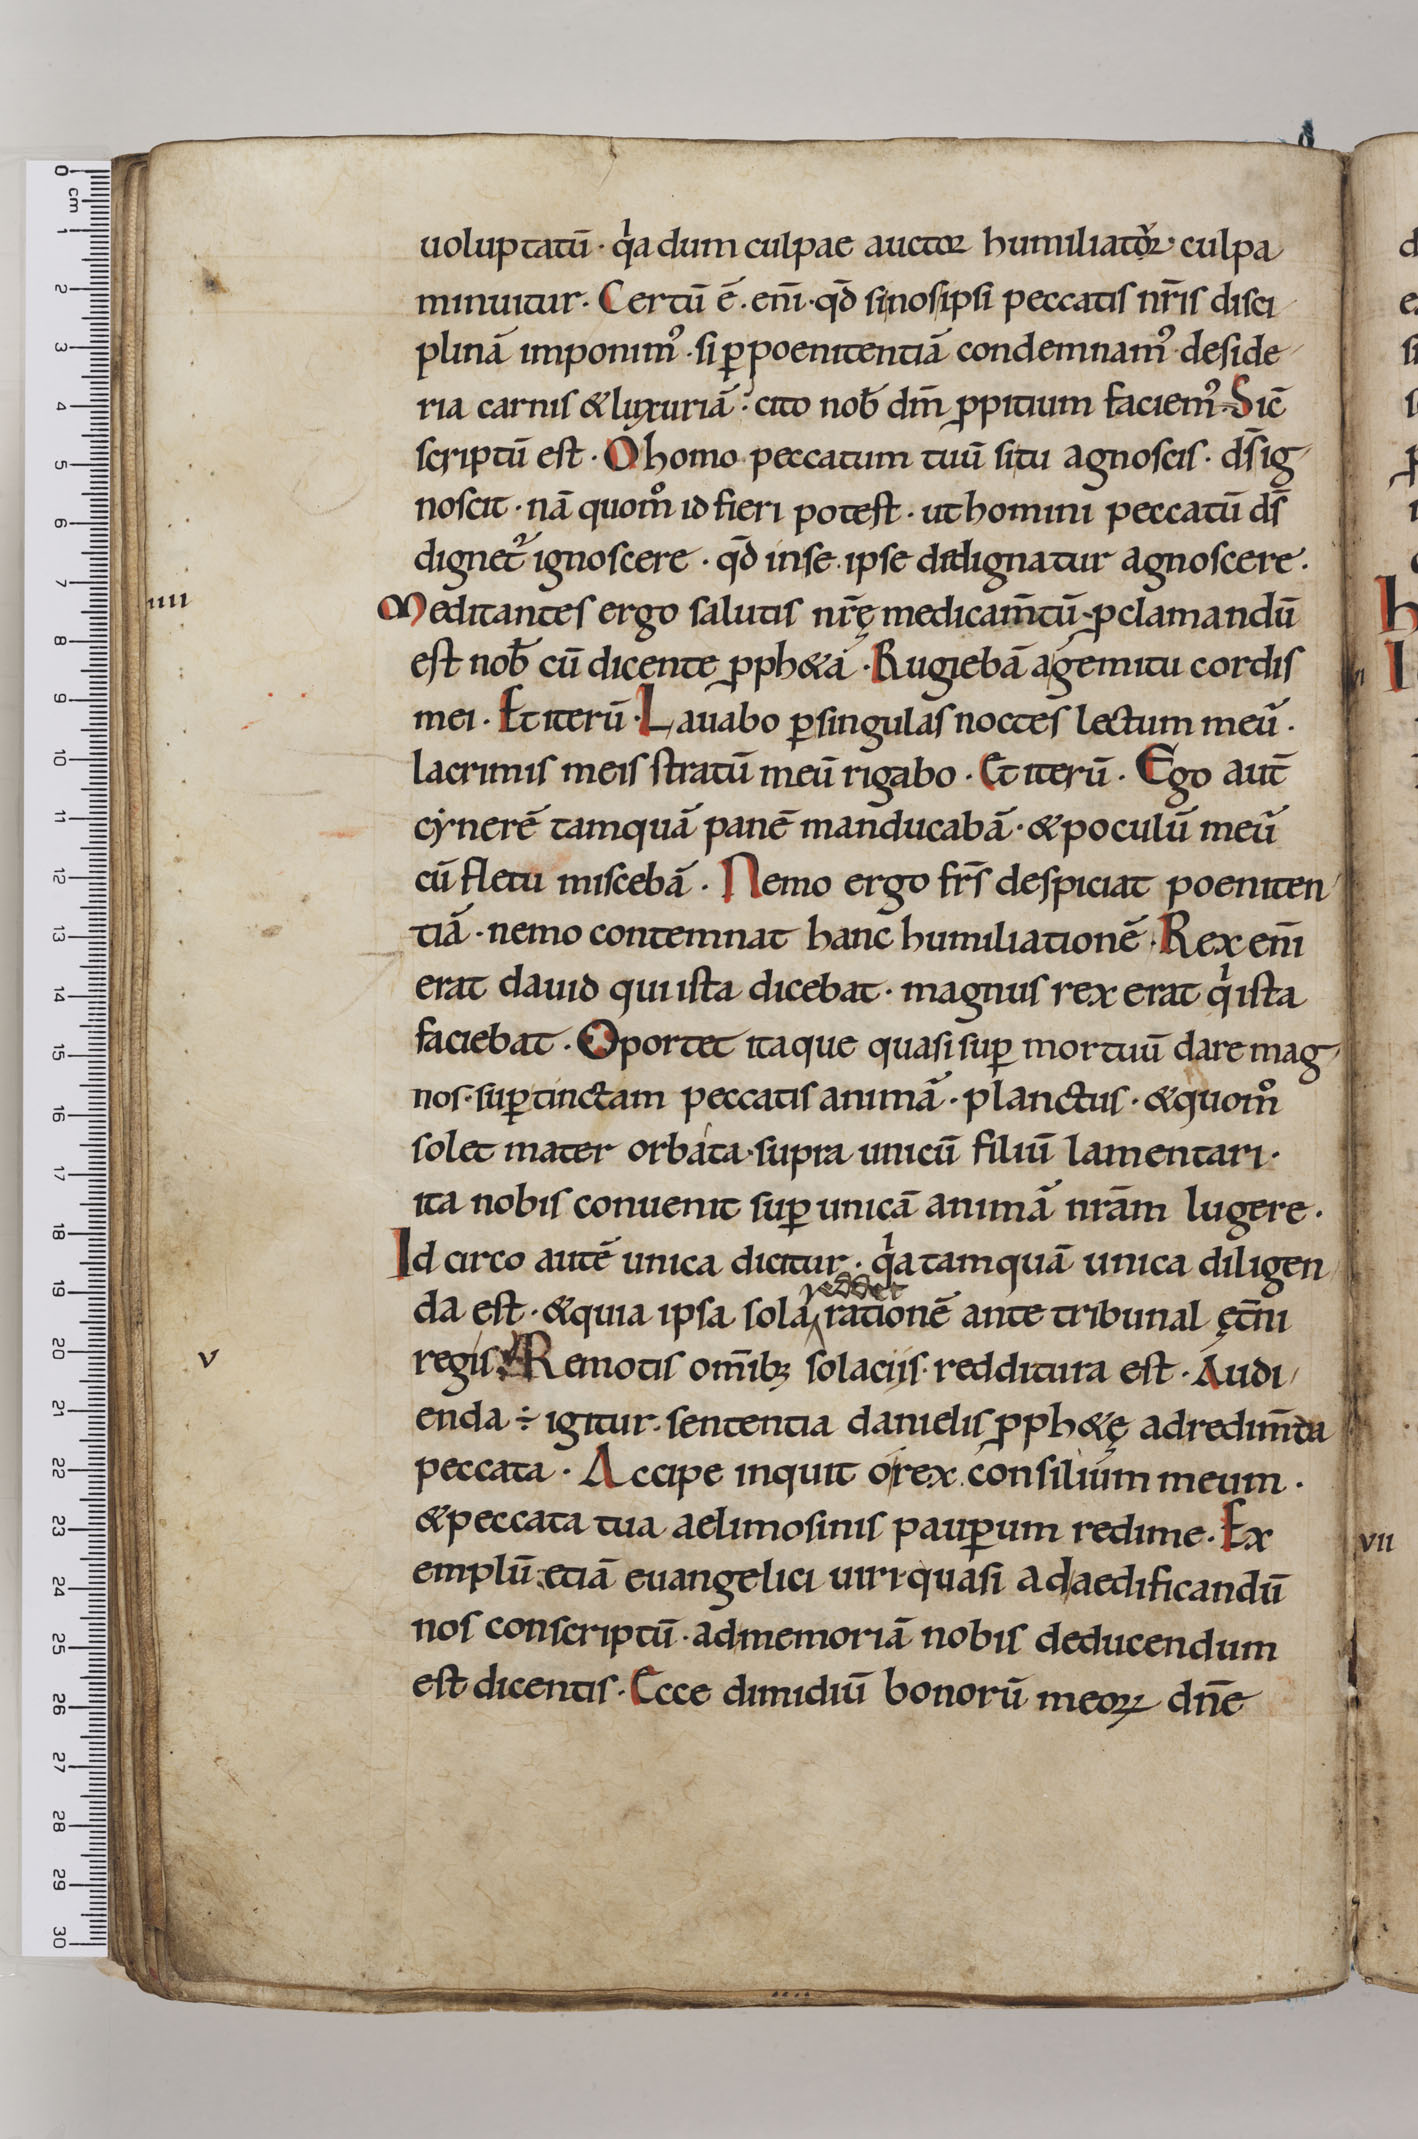 uoluptatū · qͥa dum culpae auctor humiliator᷒ · culpa
minuitur · Certū ē · eni̅ · qd̄ si nosipsi peccatis nr̄is disci
plinā imponim᷒ · si ꝑ poenitentiā condemnam᷒ · deside
ria carnis & luxuriā : cito nob̄ dm̄ ꝓpitium faciem᷒ · Sic̄
scriptū est · O homo peccatum tuū si tu agnoscis · ds̄ ig
noscit · nā quom̊ id fieri potest · ut homini peccatū ds̄
dignet᷒ ignoscere · qd̄ in se ipse dedignatur agnoscere ·
IIII
Meditantes ergo salutis nr̄ę medicam̄tū · ꝓclamandū
est nob̄ cū dicente ꝓph&a · Rugiebā a gemitu cordis
mei · Et iterū · Lauabo ꝑ singulas noctes lectum meū ·
lacrimis meis stratū meū rigabo · Et iterū · Ego aut̄
cẏnerē tamquā panē manducabā · & poculū meū
cū fletu miscebā · Nemo ergo fr̄s despiciat poeniten
tiā · nemo contemnat hanc humiliationē · Rex eni̅
erat dauid qui ista dicebat · magnus rex erat qͥ ista
faciebat · Oportet itaque quasi suꝑ mortuū dare mag
nos · suꝑ tinctam peccatis animā · planctus · & quom̊
solet mater orbata · supra unicū filiū lamentari ·
ita nobis conuenit suꝑ unicā animā nrā̄m lugere ·
Id circo autē unica dicitur · qͥa tamquā unica diligen
reddet
da est · & quia ipsa sola rationē ante tribunal ęt̄ni
V
regis · Remotis om̄ibꝫ solaciis · redditura est · Audi
enda ÷ igitur · sententia danielis ꝓph&ę ad redim̄da
peccata · Accipe inquit o rex consilium meum ·
& peccata tua aelimosinis pauꝑum redime · Ex
emplū etiā euangelici uiri · quasi ad aedificandū
nos conscriptū · ad memoriā nobis deducendum
est dicentis · Ecce dimidiū bonorū meoꝝ dn̄e
VII
0 cm 1 2 3 4 5 6 7 8 9 10 11 12 13 14 15 16 17 18 19 20 21 22 23 24 25 26 27 28 29 30